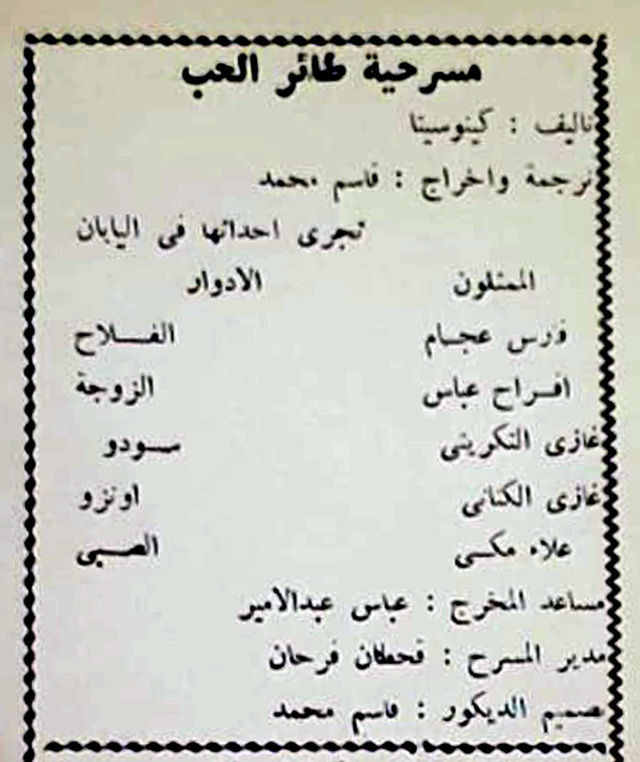 مسرحية طائر الحب
تاليف : كينوسيتا
ترجمة واخراج : قاسم محمد
تجرى احداثها فى اليابان
الممثلون الادوار
فارس عجام الفــلاح
افــراح عباس الزوجة
غازى التكريتى ســودو
غازى الكنانى اونزو
علاء مكــى الصــبى
مساعد المخرج : عباس عبدالامير
مدير المسرح : قحطان فرحان
تصميم الديكور : قاسم محمد